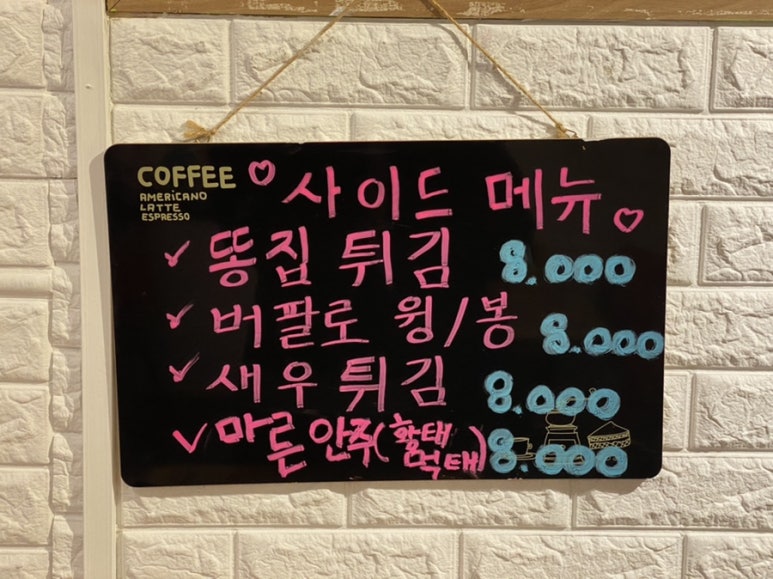 COFFEE
AMERICANO
LATTE
ESPRESSO
사이드 메뉴
똥집 튀김 8.000
버팔로 윙/봉 8.000
새우 튀김 8.000
마른안주(황태 먹태) 8.000